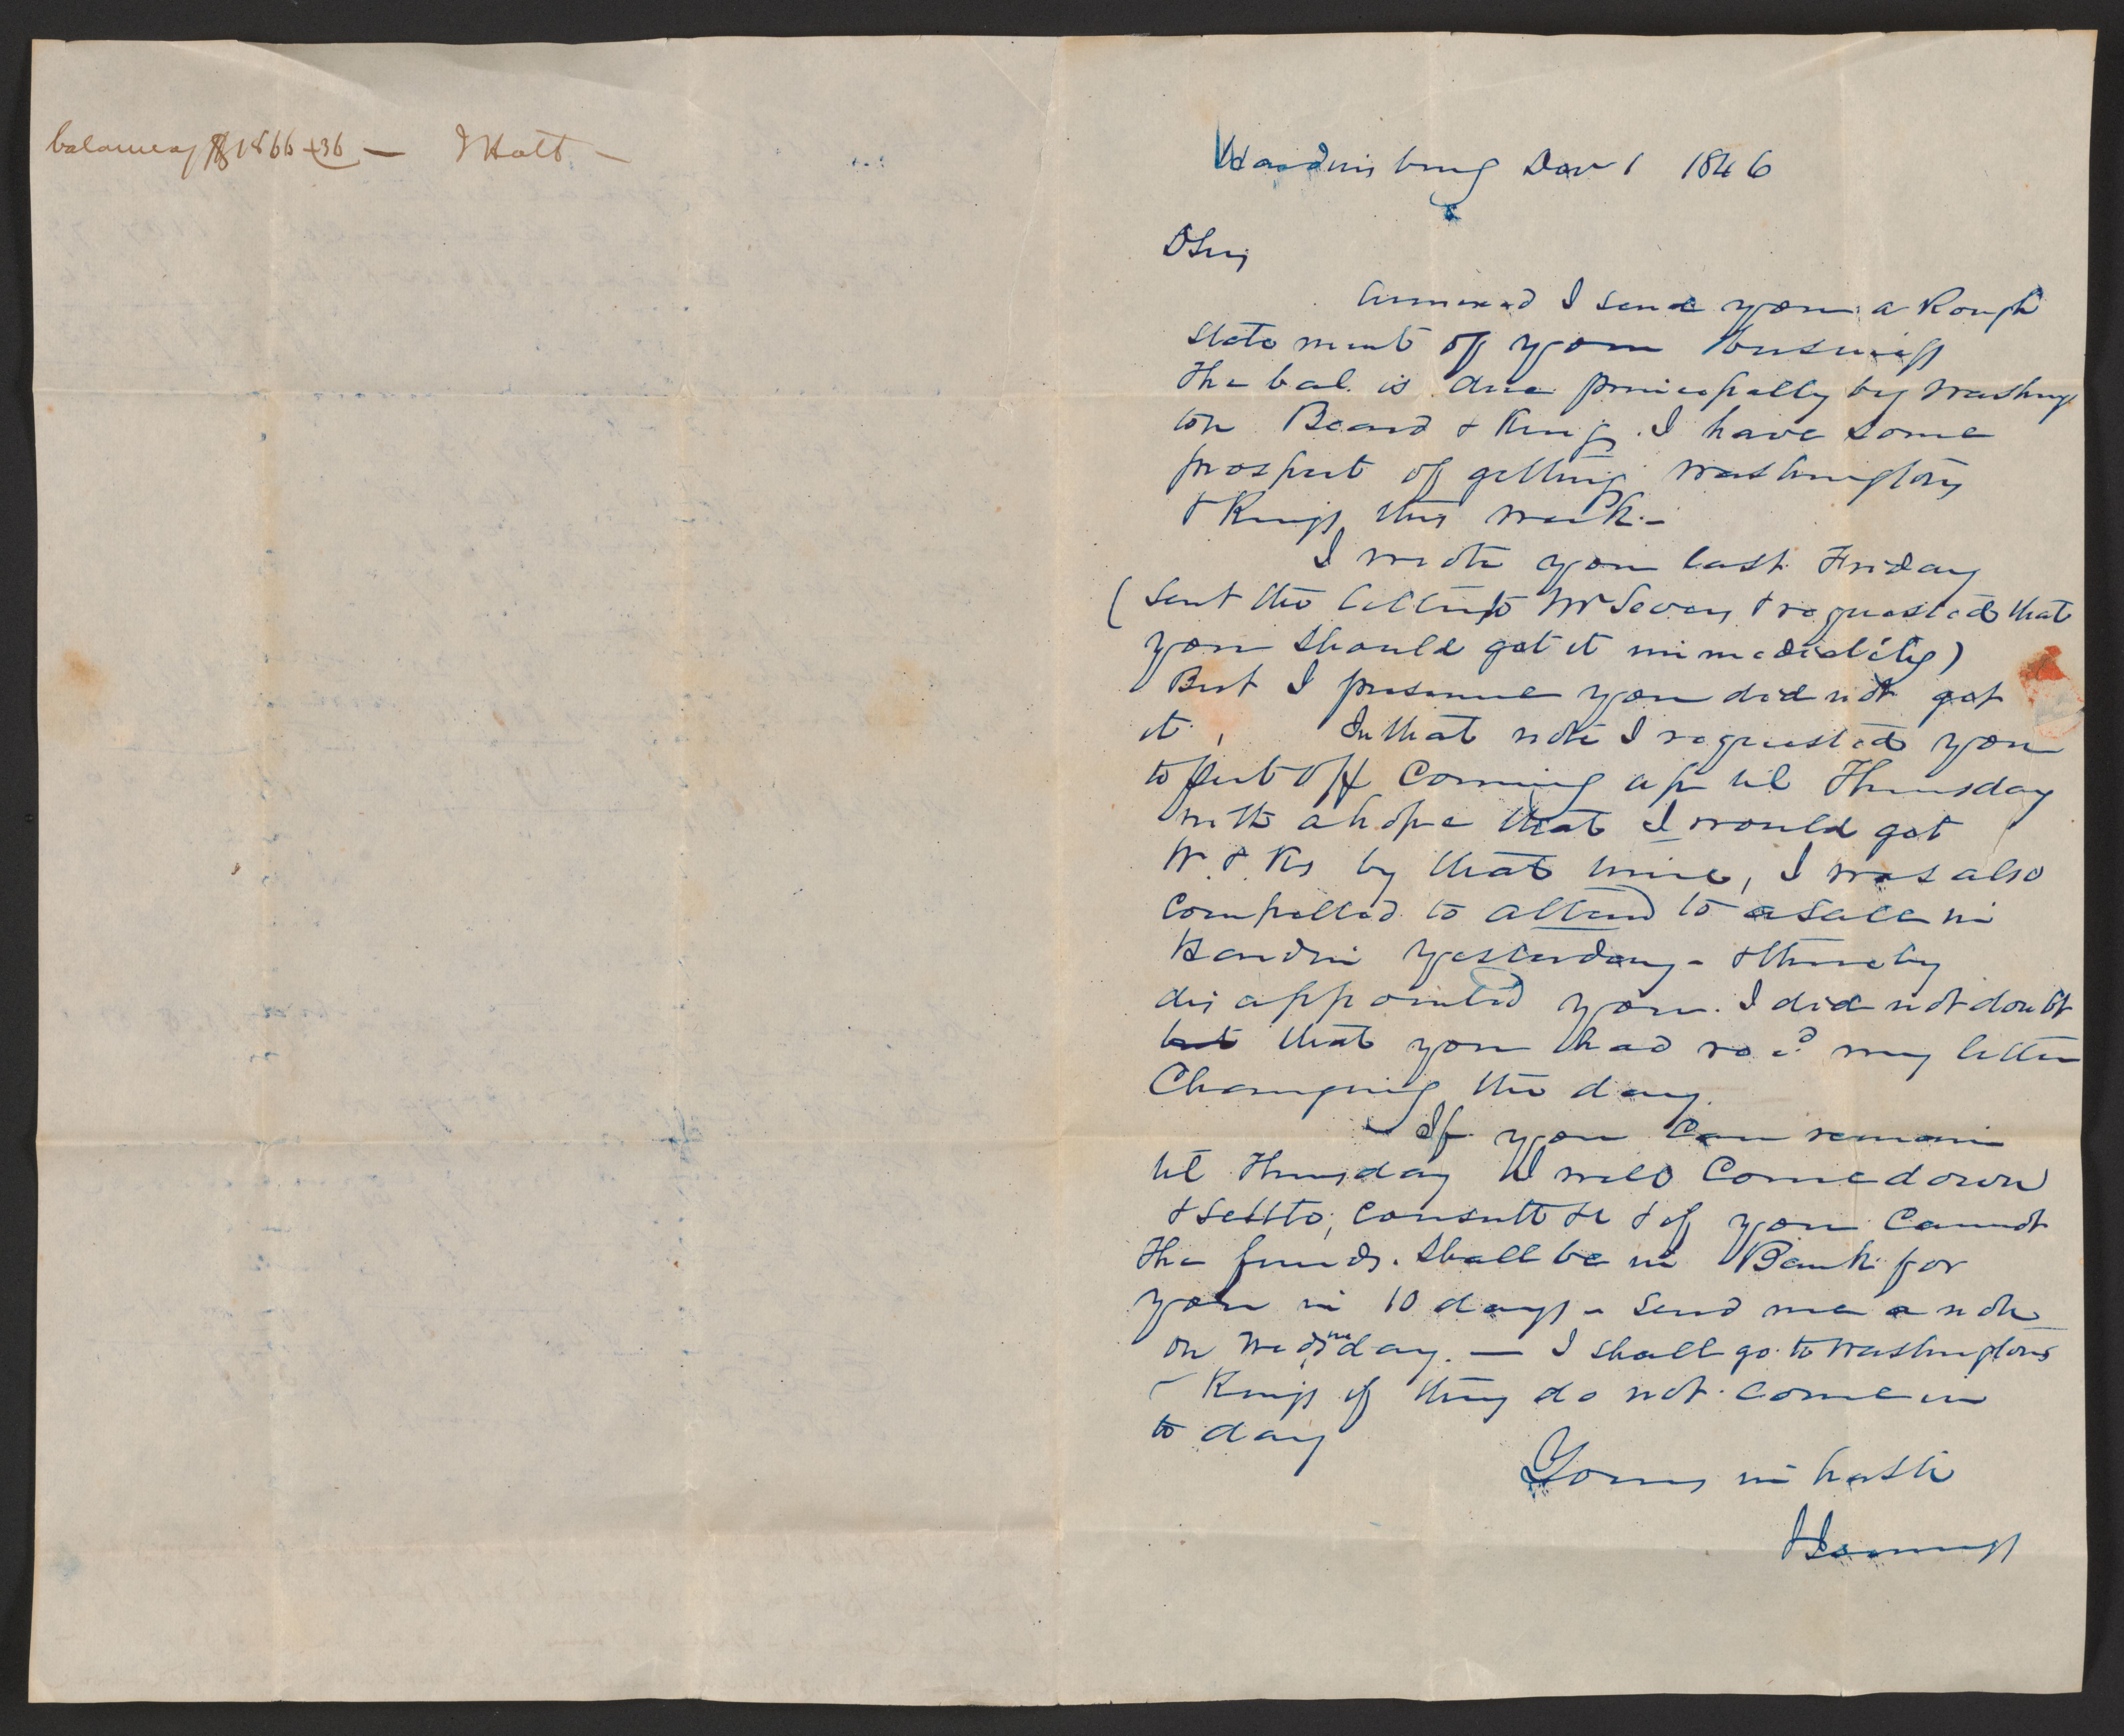 balances $1866 +36 — J Holt —
Hardinsburg Dec 1 1846
D Sir,
Annexed I send you a Rough
State ment of your business
The bal. is due principally by Washing
ton Beard & King. I have some
prospect of getting Washingtons
& Kings this week.—
I wrote you last Friday
(Sent the letter to Mr Sevory & requested that
you should get it immediately)
But I presume you did not get
it, In that note I requested you
to put off Coming up til Thursday
with a hope that I would get
W. & Ks by that time, I was also
Compelled to attend to a sale in
Hardin yesterday - & thereby
disappointed you. I did not doubt
but that you had recd my letter
Changing the day.
If you Can remain
til Thursday I will Come down
& settle, consult &c & if you Cannot
The funds. Shall be in Bank for
you in 10 days - Send me a note
on Wednesday. — I shall go to Washingtons
& Kings if they do not come in
to day
Yours in haste